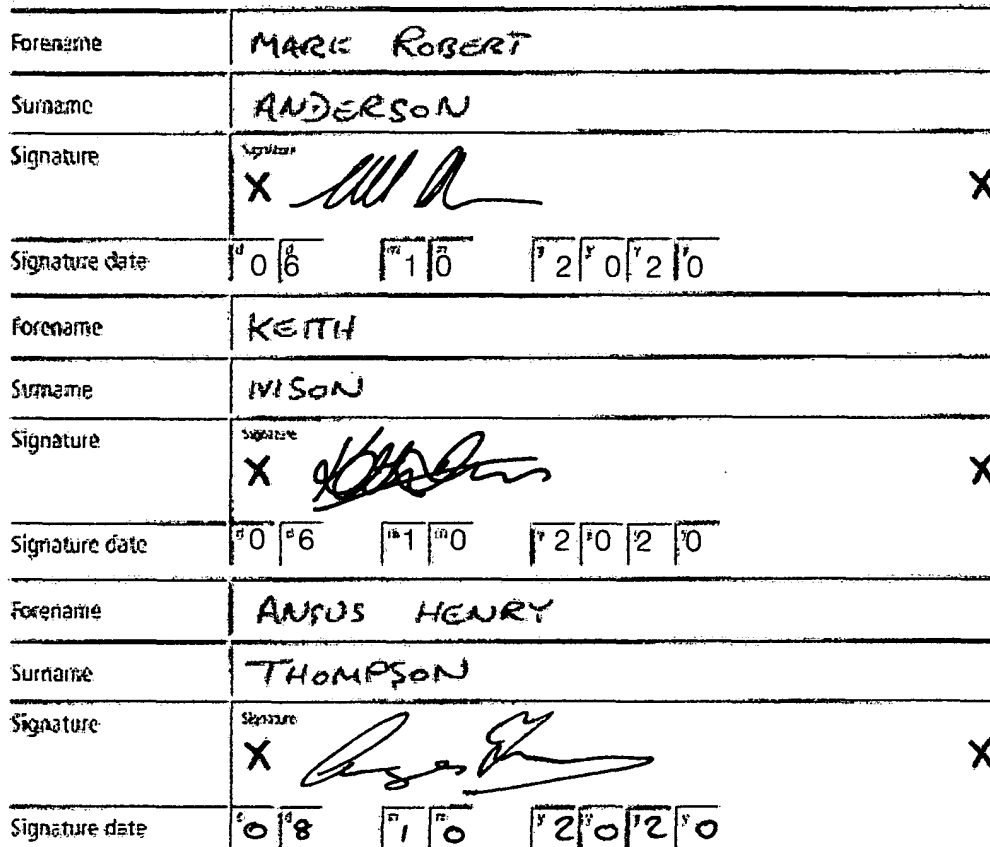 Forename MARK ROBERT
Surname ANDERSON
Signature Signature
X X
Signature date d 0 d 6 m 1 m 0 y 2 y 0 y 2 y 0
Forename KEITH
Surname IVISON
Signature Signature
X X
Signature date d 0 d 6 m 1 m 0 y 2 y 0 2 y 0
Forename ANGUS HENRY
Surname THOMPSON
Signature Signature
X X
Signature date 0 d 8 m 1 m 0 y 2 y 0 y 2 y 0